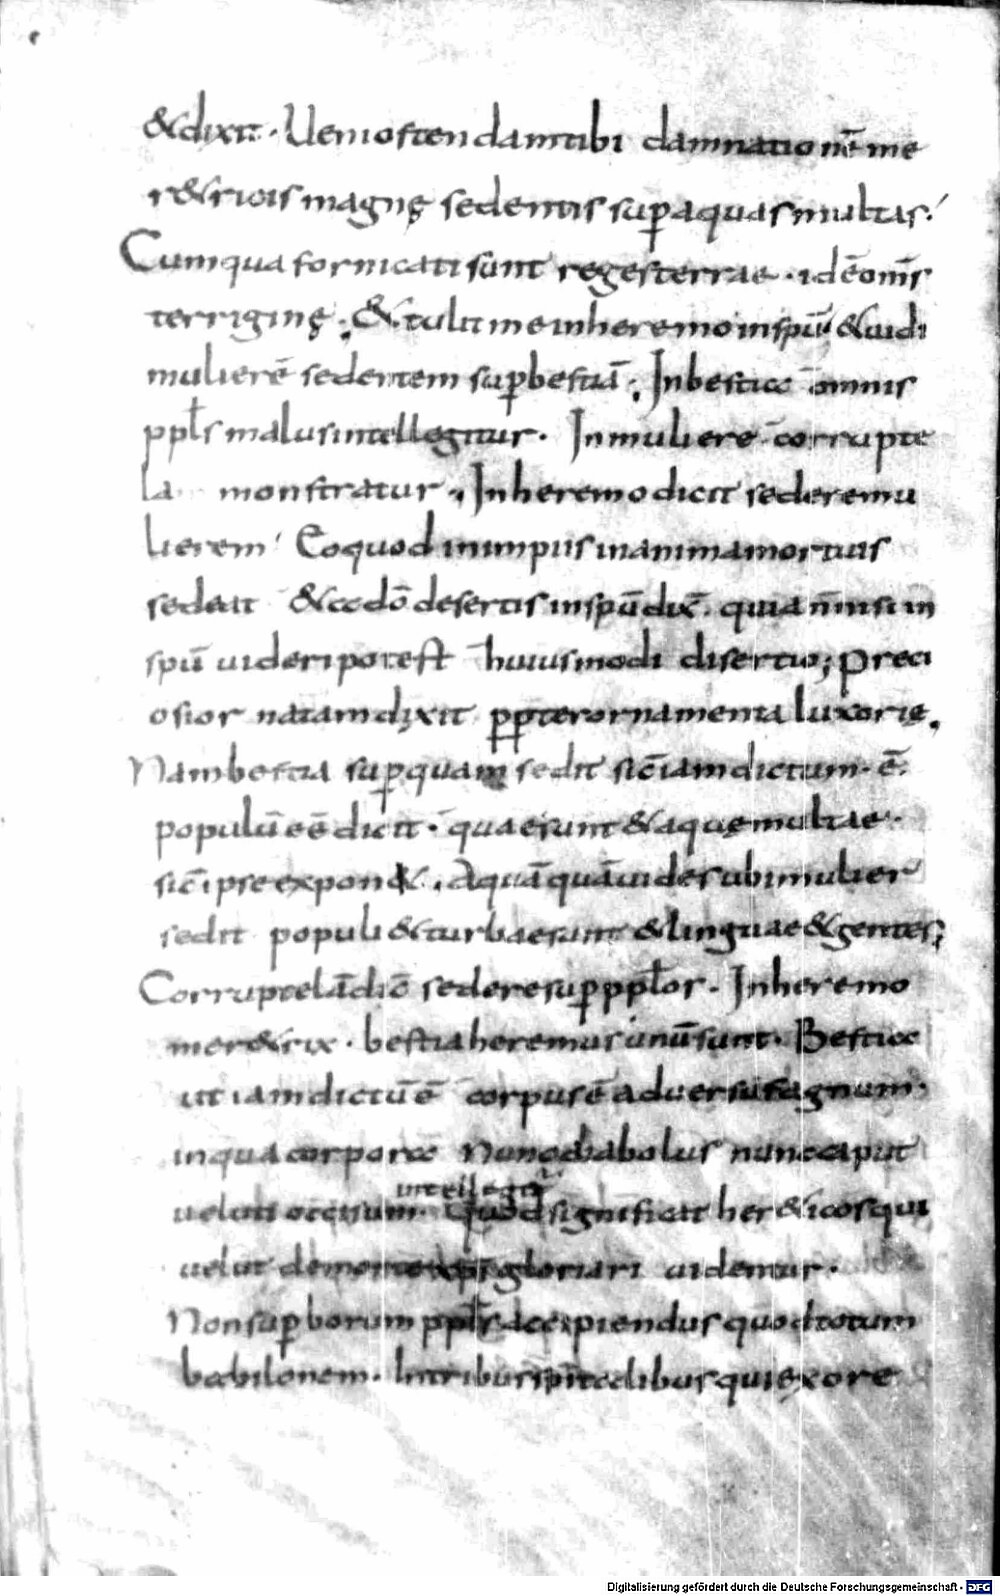 &dixit · Ueni ostendam tibi damnationē me
r&ricis magnę sedentis sup aquas multas ·
Cum qua fornicati sunt reges terrae · id ē om̄s
terriginę · & tulit me in heremo in spū & uidi
mulierē sedentem sup bestiā · In bestia omnis
ppl̄s malus intellegitur · In muliere corrupte
la monstratur · In heremo dicit sedere mu
lierem Eo quod in impiis in anima mortuis
sedeat & a dō desertis in spū dix̄ · quia n̄ nisi in
spū uideri potest huiusmodi disertio ; preci
osior natam dixit ppter ornamenta luxorię ·
Nam bestia sup quam sedit sic̄ iam dictum · ē ·
populū eē dicit · quae sunt & aquę multae ·
sic̄ ipse expon& · Aquā quā uides ubi mulier
sedit populi & turbae sunt & linguae & gentes ;
Corruptelā dic̄ sedere sup ppl̄os · In heremo
mer&rix · bestia heremus unū sunt · Bestia
ut iam dictū ē corpus ē aduersus agnum ·
in qua corpore Nunc diabolus nunc caput
intellegit̄
ueluti occisum · Quod significat her&icos qui
uelut de morte xp̄i gloriari uidentur ·
Non superborum ppl̄s accipiendus quod totum
babilonem · In tribus sp̄italibus qui ex ore